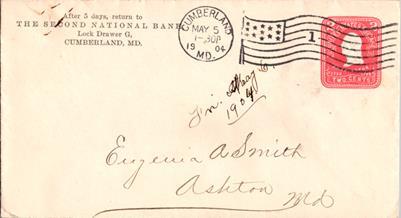 After 5 days, return to
THE SECOND NATIONAL BANK
Lock Drawer G,
CUMBERLAND, MD.
CUMBERLAND
MAY 5
1-30P
1904
MD.
1
TWO CENTS
May 6,
1904
Eugenia A Smith
Ashton
Md